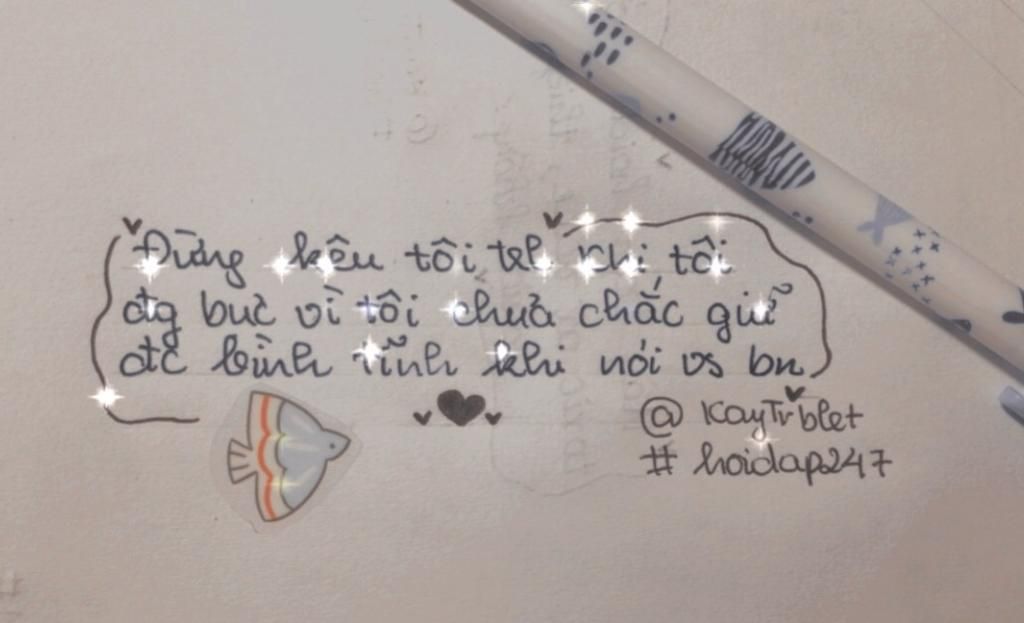 Đừng kêu tôi tel khi tôi
đg bực vì tôi chưa chắc giữ
đtc bình tĩnh khi nói vs bn
@ KayTrblet
# hoidap247